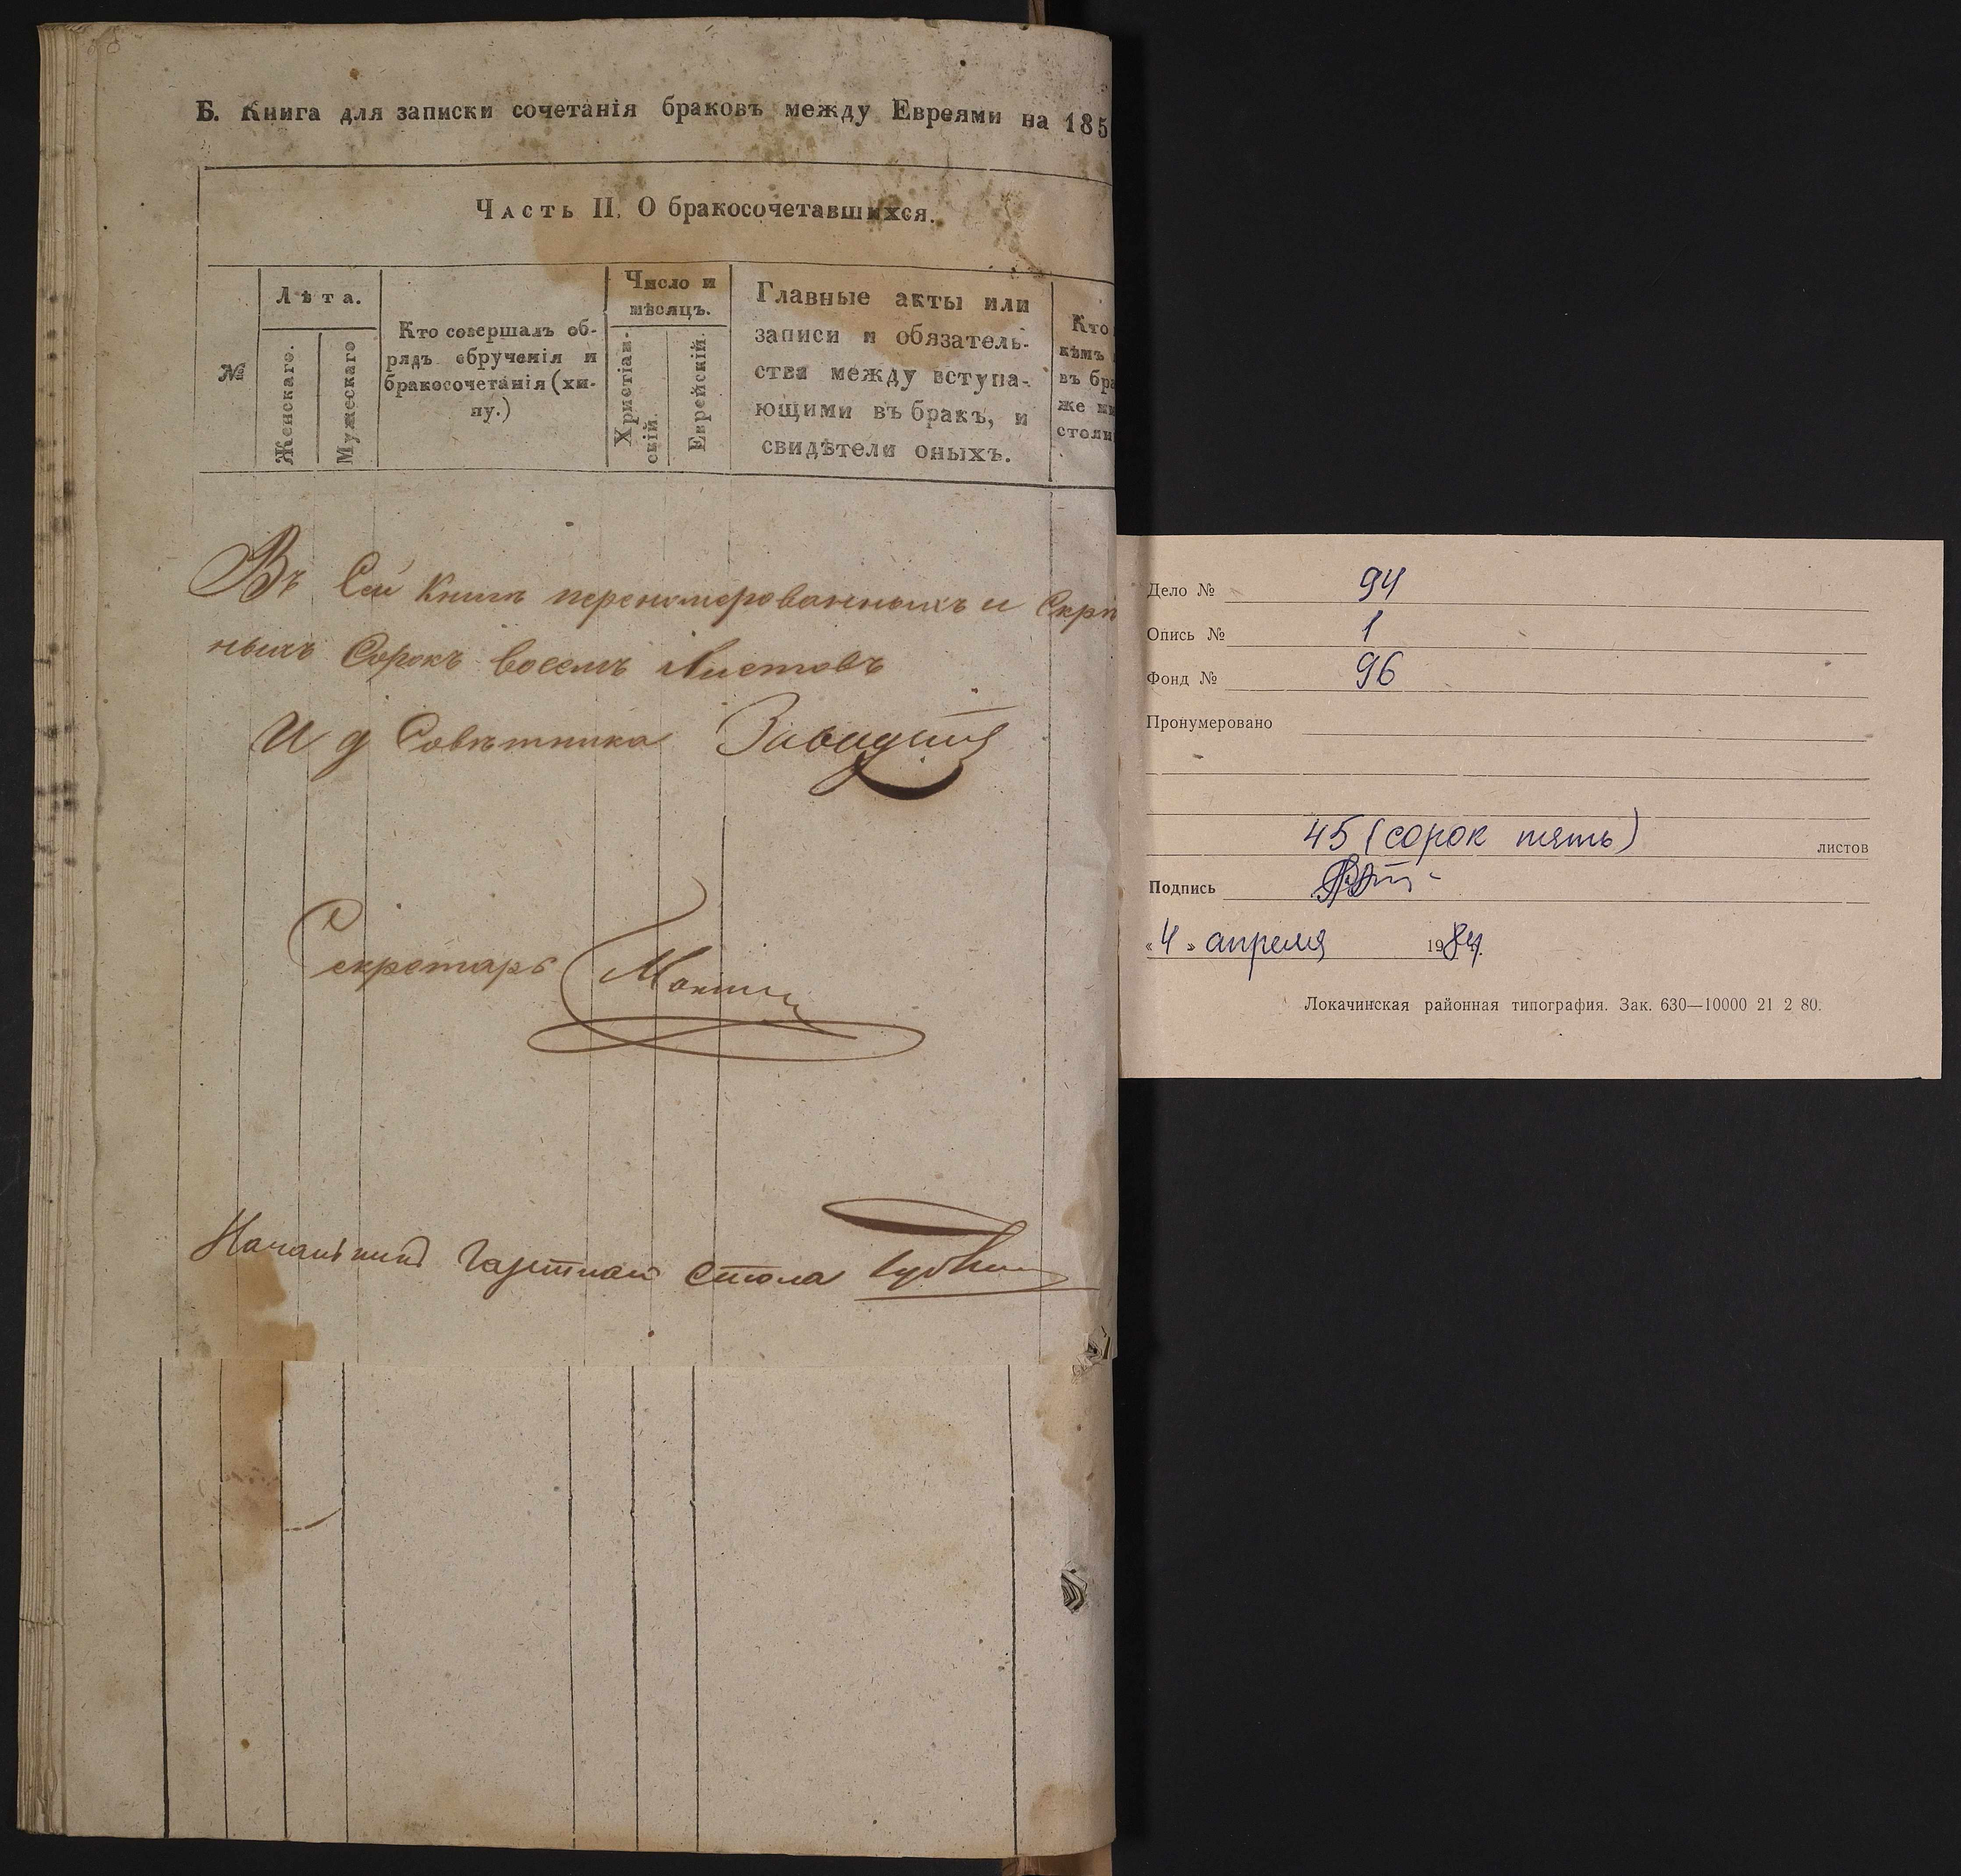 Б. Книга для записки сочетанія браковъ между Евреями на 185
Часть II. О бракосочетавшихся.
№
Лѣта.
Женскаго.
Мужескаго
Кто совершалъ об-
рядъ обрученія и
бракосочетанія (хи-
пу.)
Число и
мѣсяцъ.
Христіан-
скій.
Еврейскій.
Главные акты или
записи и обязатель-
ства между вступа-
ющими въ бракъ, и
свидѣтели оныхъ.
Кто
кѣмъ
въ бра
же им
столи
Въ Сей Книгѣ перенумерованныхъ и Скрѣ
ныхъ Сорокъ восемь Листовъ
И д Совѣтника
Секретарь
Начальникъ стола
Дело № 94
Опись № 1
Фонд № 96
Пронумеровано
45 (сорок пять) листов
Подпись
«4» апреля 1984.
Локачинская районная типография. Зак. 630—10000 21 2 80.